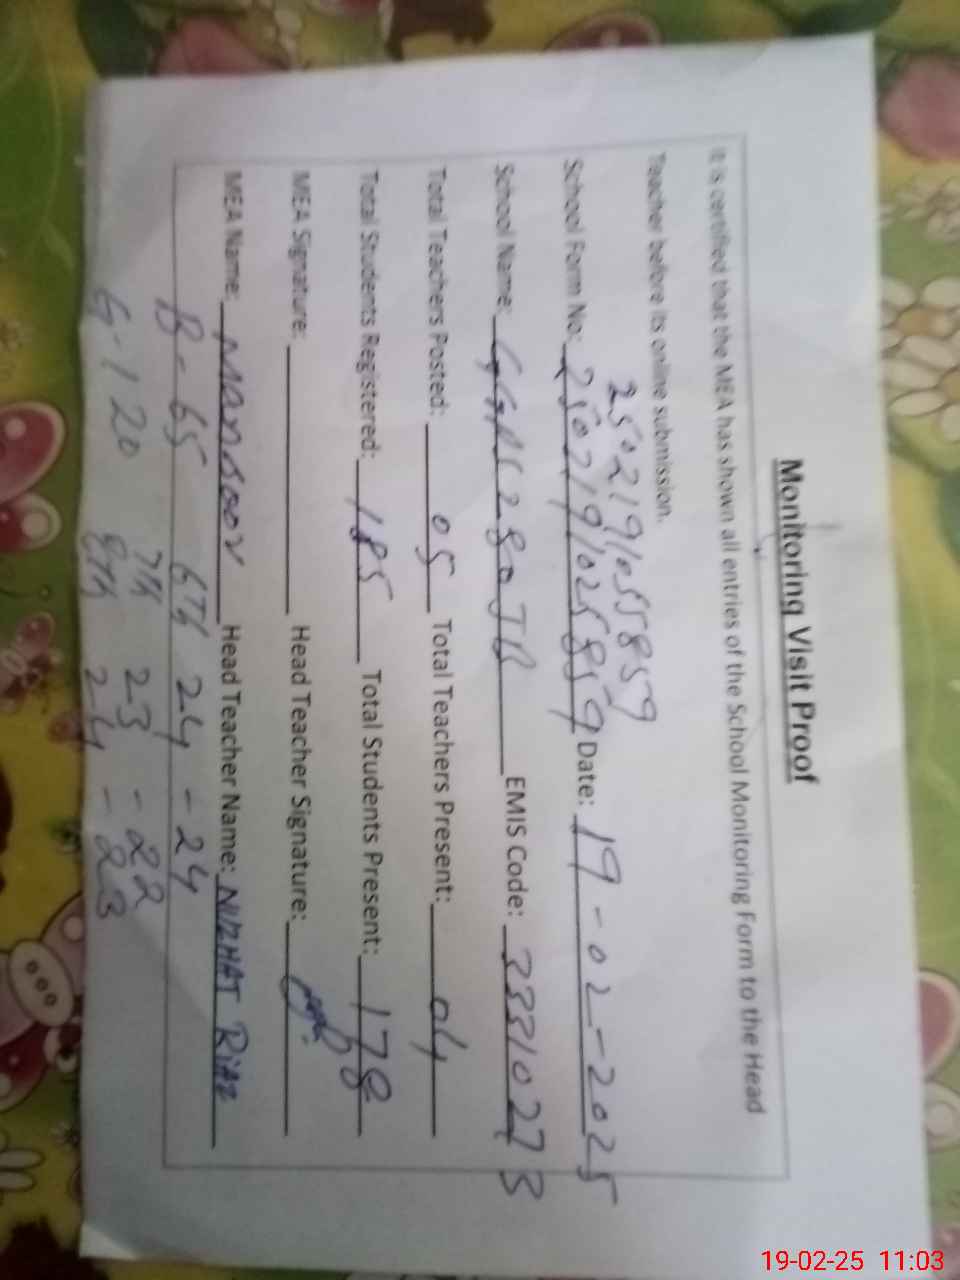 Monitoring Visit Proof
It is certified that the MEA has shown all entries of the School Monitoring Form to the Head
Teacher before its online submission.
2502191055859
School Form No: Date: 19-02-2025
School Name: 280 JB EMIS Code: 33310273
Total Teachers Posted: 05 Total Teachers Present: 04
Total Students Registered: 185 Total Students Present: 178
MEA Signature: Head Teacher Signature:
MEA Name: Mansoor Head Teacher Name: NUZHAT Riaz
B-65 6th 24-24
G-120 7th 23-22
8th 24-23
19-02-25 11:03